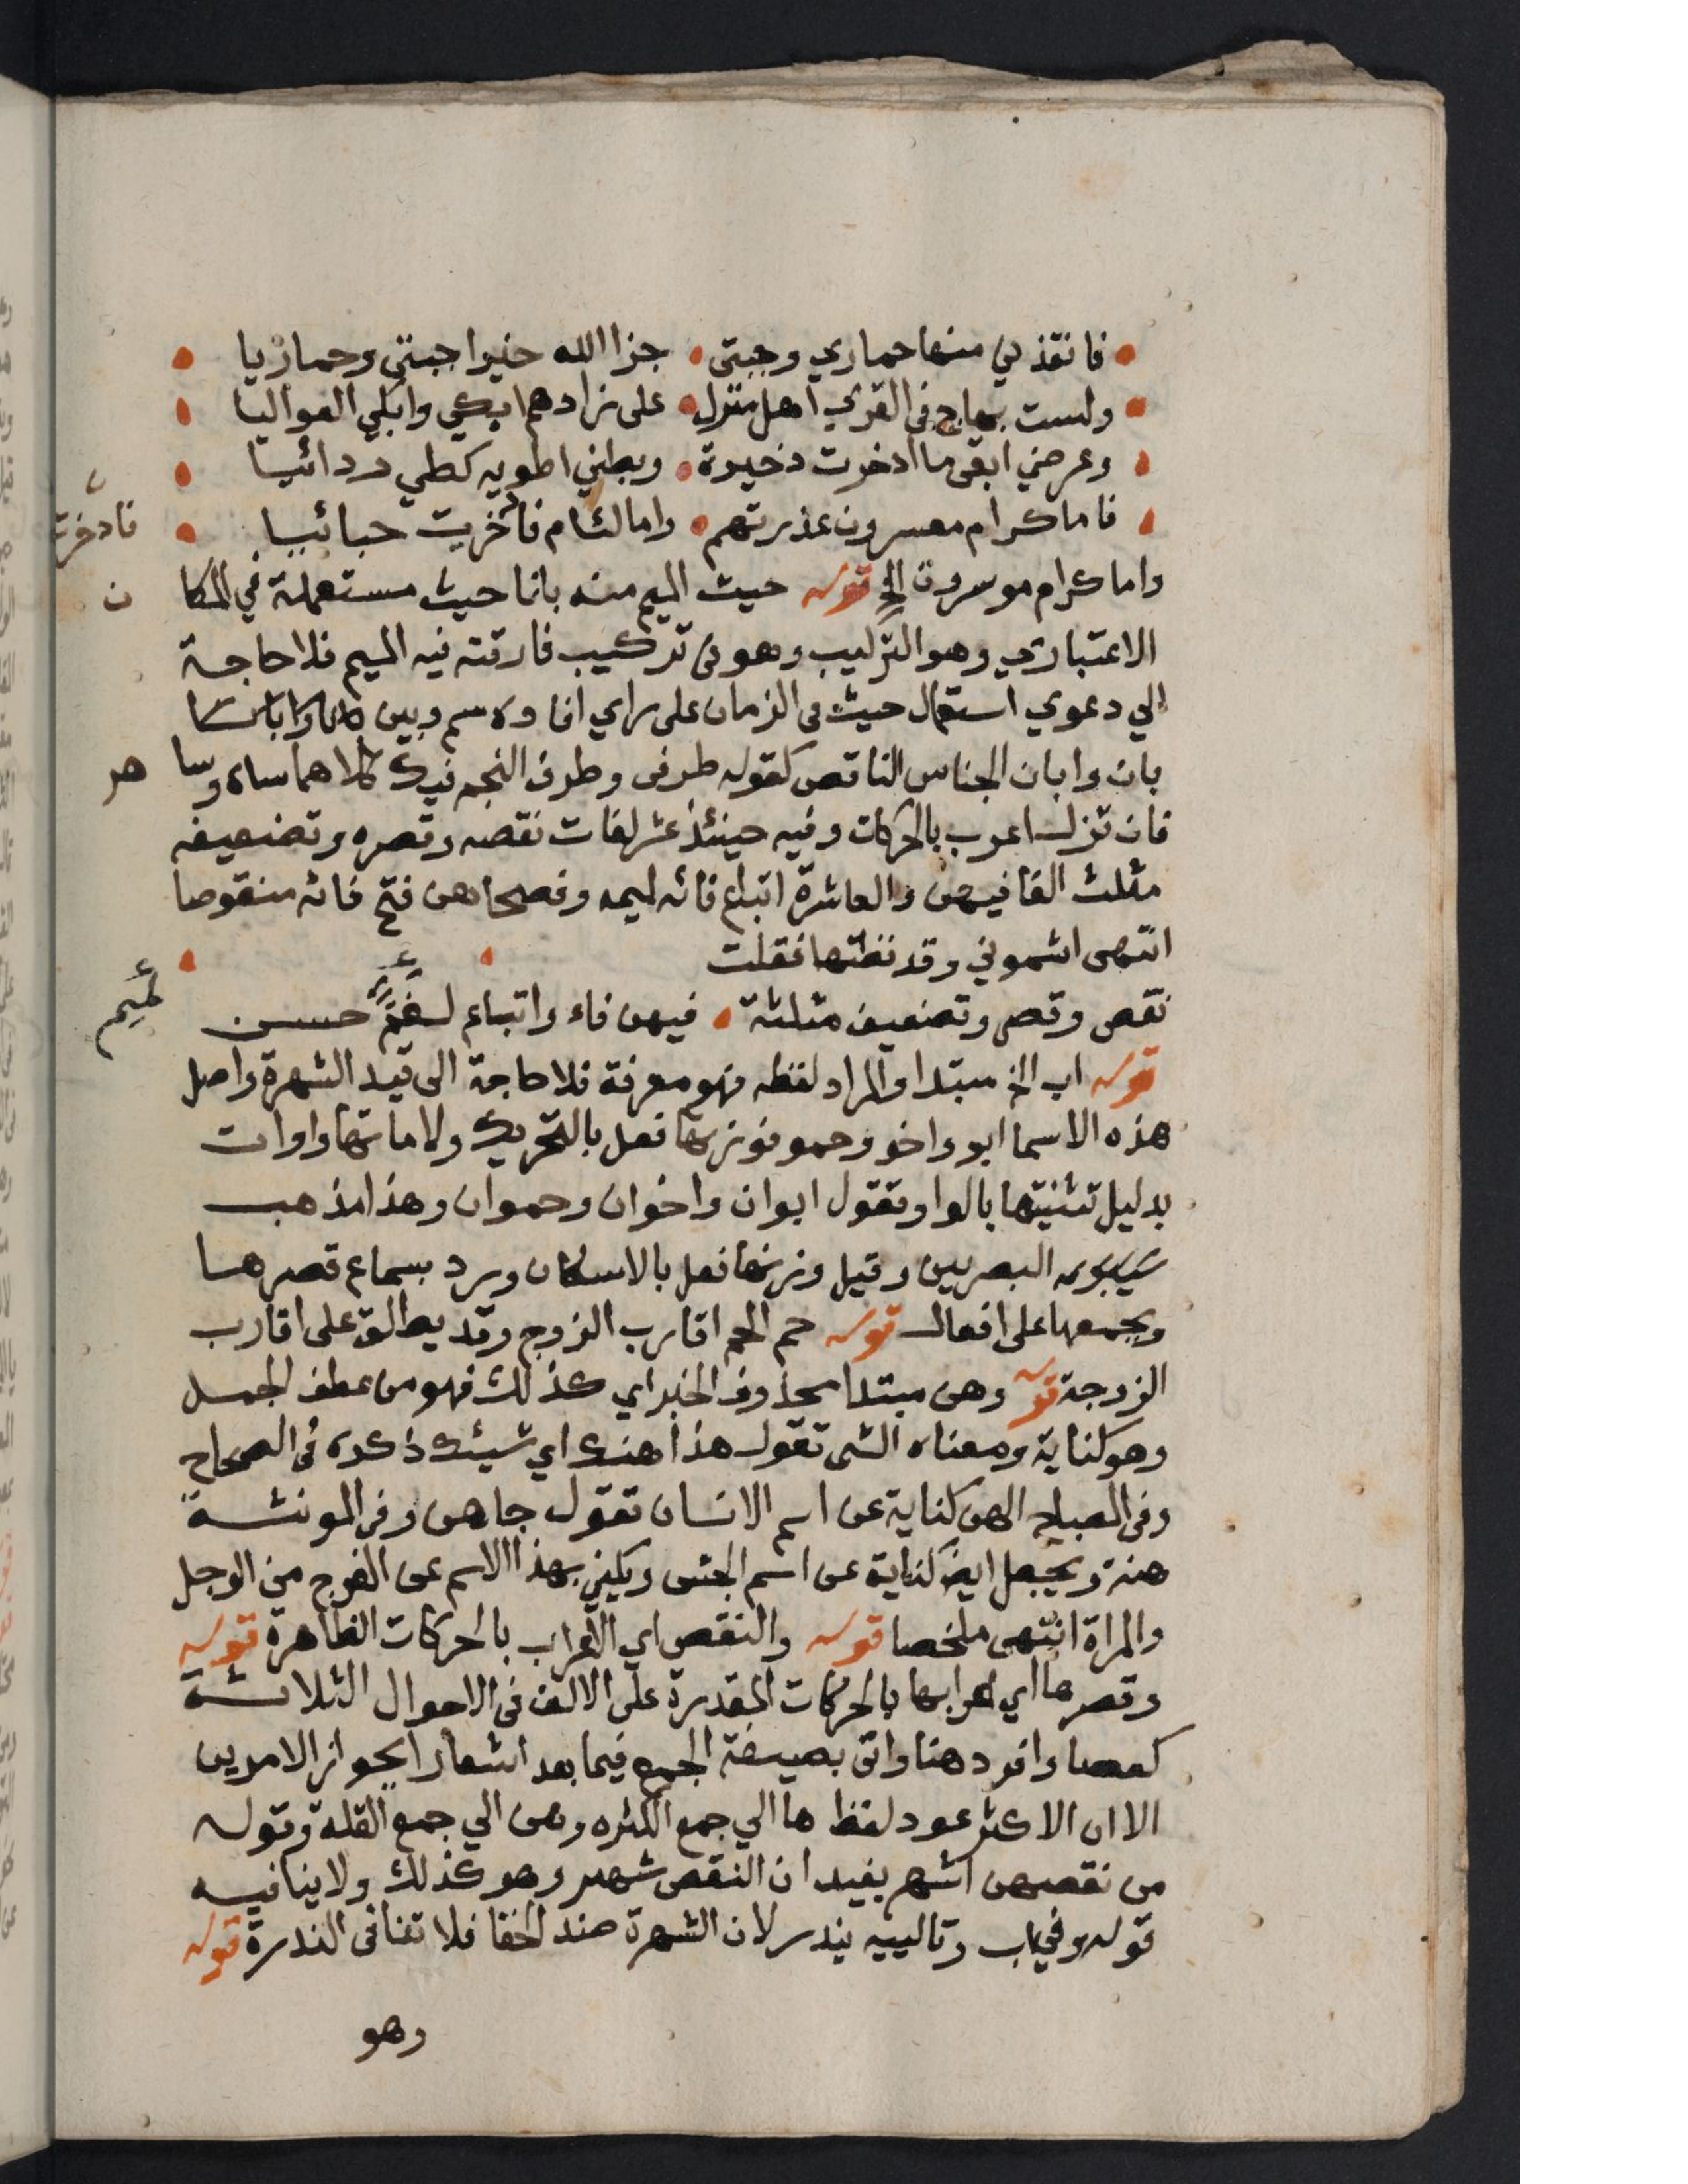 فانقذ لي منها حماري وجبتى • جزا الله خيرا جبتي وحماريا
ولست بهاج في القري اهل منزل • على زادهم ابكي وابكي البواكيا
وعرضي ابقى ما ادخرت ذخيرة • وبطني اطويه كطي ردائيا
فاما كرام معسرون عذرتهم • واما لئام فادخرت حيائيا
فادخرت
واما كرام موسرون الخ قوله حيث الميم منه بانا حيث مستعملة في المكا
ن
الاعتباري وهو التركيب وهو في تركيب فارقته فيه الميم فلا حاجة
الي دعوي استعمال حيث في الزمان على راي
بان وابان الجناس الناقص كقوله طرفى وطرف النجم فيك كلاهما ساه وسا
هر
فان تزل اعرب بالحركات وفيه حينئذ عشر لغات نقصه وقصره وتضعيفه
مثلث الفا فيهن والعاشرة اتباع فائه لميمه وفصحاهن فتح فائه منقوصا
انتهى اشموني وقد نظمتها فقلت
نقص وقصر وتضعيف مثلثة • فيهن فاء واتباع لفم حسن
لميم
قوله اب الخ مبتدا والمراد لفظه فهو معرفة فلا حاجة الى قيد الشهرة واصل
هذه الاسما ابو واخو وحمو فوزنها فعل بالتحريك ولاماتها واوات
بدليل تثنيتها بالواو تقول ابوان واخوان وحموان وهذا مذهب
سيبويه البصريين وقيل وزنها فعل بالاسكان ورد بسماع قصرها
وبجمعها على افعال قوله حم الحم اقارب الزوج وقد يطلق على اقارب
الزوجة قوله وهن مبتدا محذوف الخبر اي كذلك فهو من عطف الجمل
وهو كناية ومعناه الشى تقول هذا هنك اي شيئك ذكره في الصحاح
وفى المصباح الهن كناية عن اسم الانسان تقول جا هن وفي المونثة
هنة ويجعل ايضا كناية عن اسم الجنس ويكنى بهذا الاسم عن الفرج من الرجل
والمراة انتهى ملخصا قوله والنقص اي الاعراب بالحركات الظاهرة قوله
وقصرها اي اعرابها بالحركات المقدرة على الالف في الاحوال الثلاثة
كعصا وافرد هنا واتى بصيغة الجمع فيما بعد اشعارا بجواز الامرين
الا ان الاكثر عود لفظ ها الي جمع الكثره وهن الي جمع القلة وقوله
من نقصهن اشهر يفيد ان النقص شهير وهو كذلك ولا ينافيه
قوله وفي اب وتالييه يندر لان الشهرة ضد الخفا فلا تنافى الندرة قوله
وهو